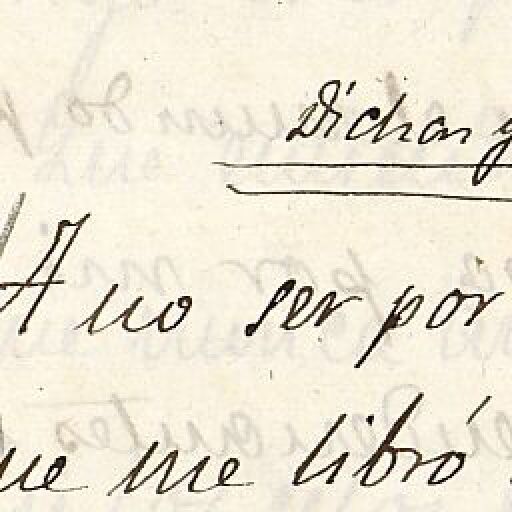 Dichas y
A no ser por
ue me libró